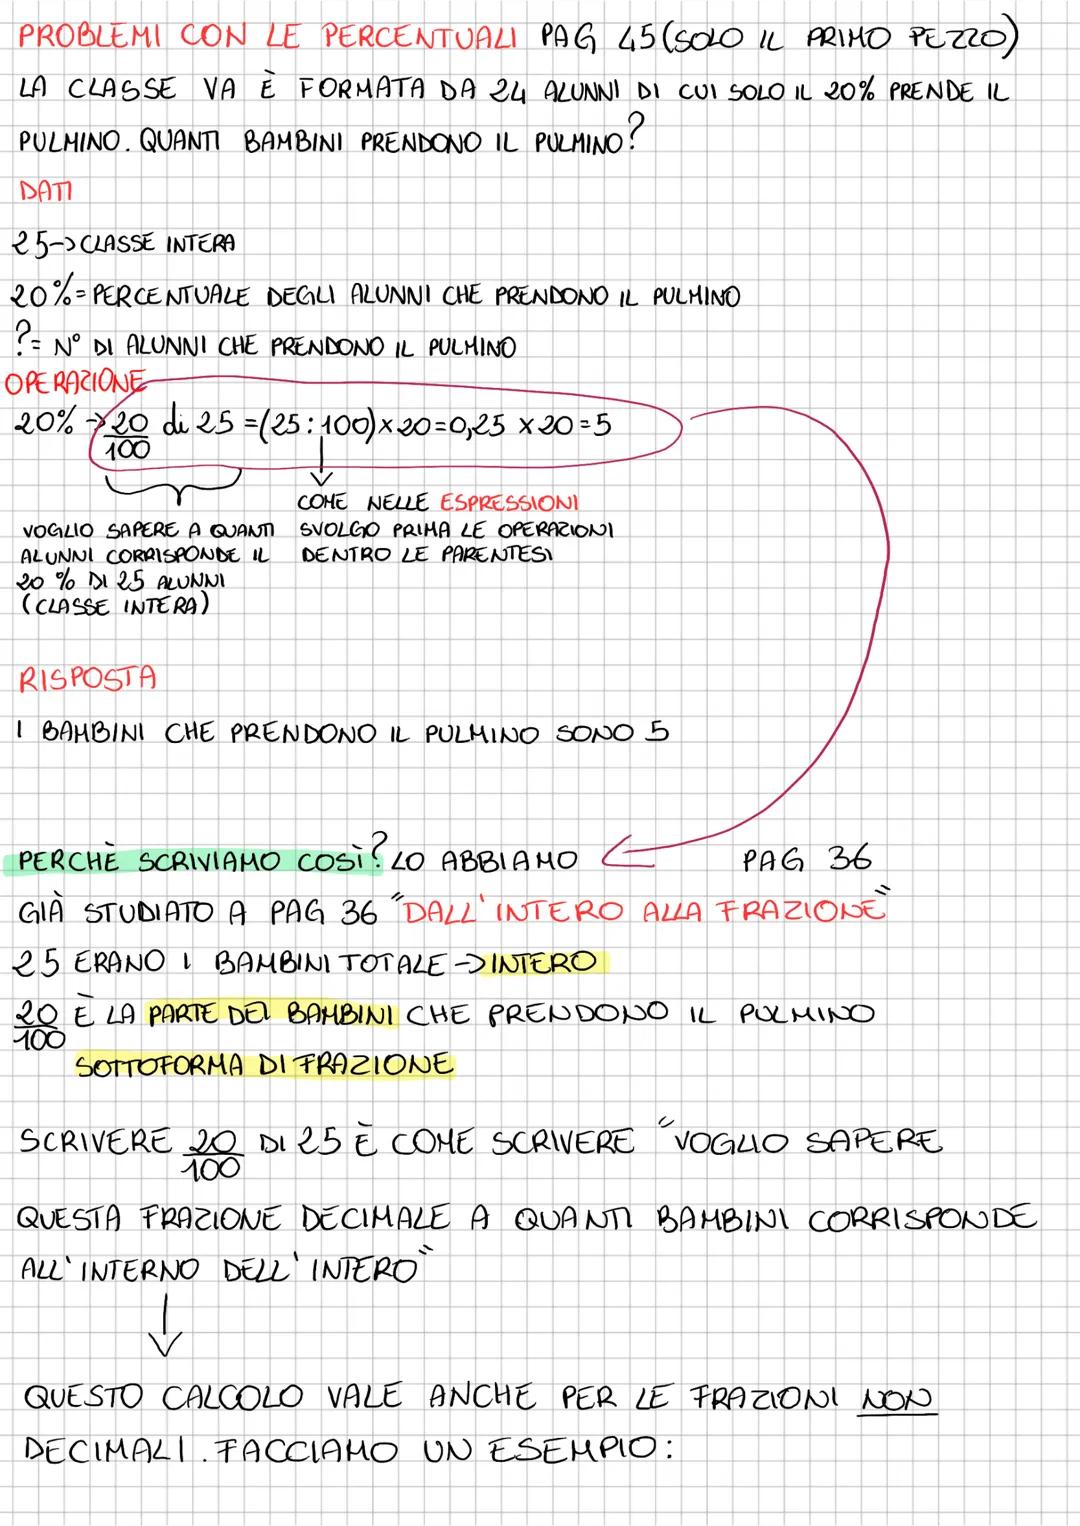 PROBLEMI CON LE PERCENTUALI PAG 45 (SOLO IL PRIMO PEZZO)
LA CLASSE VA È FORMATA DA 24 ALUNNI DI CUI SOLO IL 20% PRENDE IL
PULMINO. QUANTI BAMBINI PRENDONO IL PULMINO?
DATI
25->CLASSE INTERA
20%=PERCENTUALE DEGLI ALUNNI CHE PRENDONO IL PULMINO
?= N° DI ALUNNI CHE PRENDONO IL PULMINO
OPERAZIONE
20% -> 20/100 di 25 =(25:100)x20=0,25 x20=5
VOGLIO SAPERE A QUANTI
ALUNNI CORRISPONDE IL
20 % DI 25 ALUNNI
(CLASSE INTERA)
COME NELLE ESPRESSIONI
SVOLGO PRIMA LE OPERAZIONI
DENTRO LE PARENTESI
RISPOSTA
I BAMBINI CHE PRENDONO IL PULMINO SONO 5
PERCHÈ SCRIVIAMO COSÌ? LO ABBIAMO PAG 36
GIÀ STUDIATO A PAG 36 "DALL'INTERO ALLA FRAZIONE"
25 ERANO I BAMBINI TOTALE -> INTERO
20/100 È LA PARTE DEI BAMBINI CHE PRENDONO IL PULMINO
SOTTOFORMA DI FRAZIONE
SCRIVERE 20/100 DI 25 È COME SCRIVERE "VOGLIO SAPERE
QUESTA FRAZIONE DECIMALE A QUANTI BAMBINI CORRISPONDE
ALL'INTERNO DELL'INTERO"
QUESTO CALCOLO VALE ANCHE PER LE FRAZIONI NON
DECIMALI. FACCIAMO UN ESEMPIO: